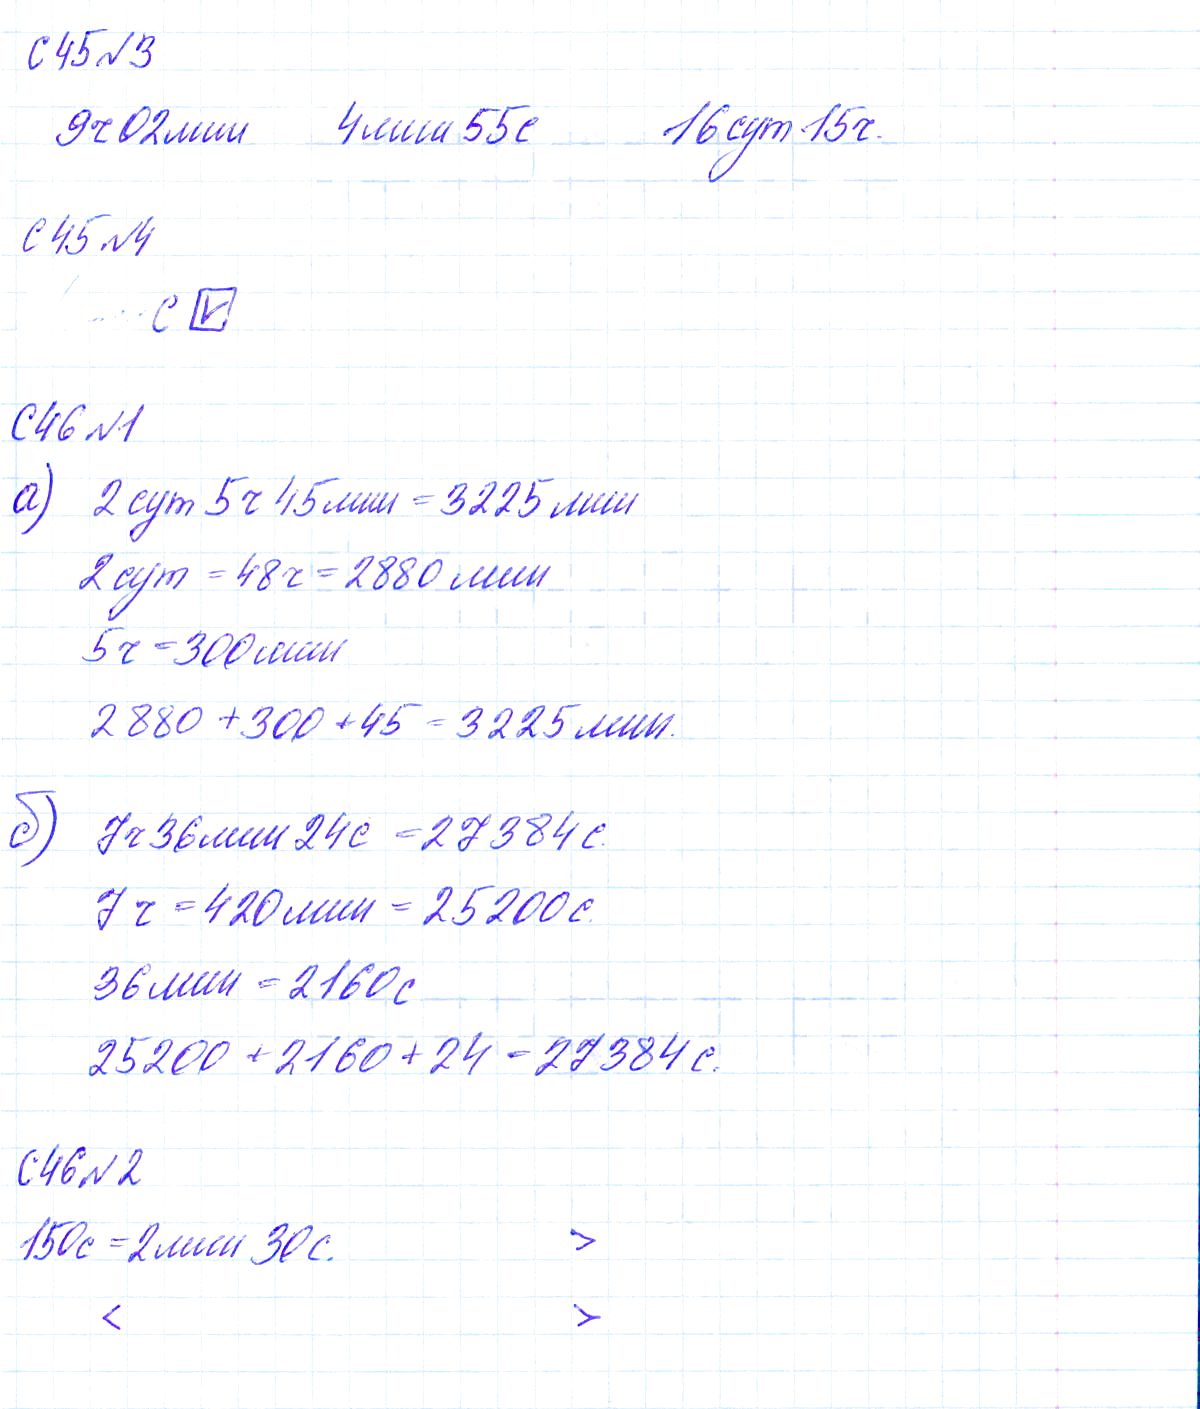 С45№3
9ч02мин 4мин55с 16сут15ч.
С45№4
С
С46№1
а) 2сут5ч45мин=3225мин
2сут=48ч=2880мин
5ч=300мин
2880+300+45=3225мин.
б) 7ч36мин24с=27384с.
7ч=420мин=25200с.
36мин=2160с
25200+2160+24=27384с.
С46№2
150с=2мин30с. >
< >